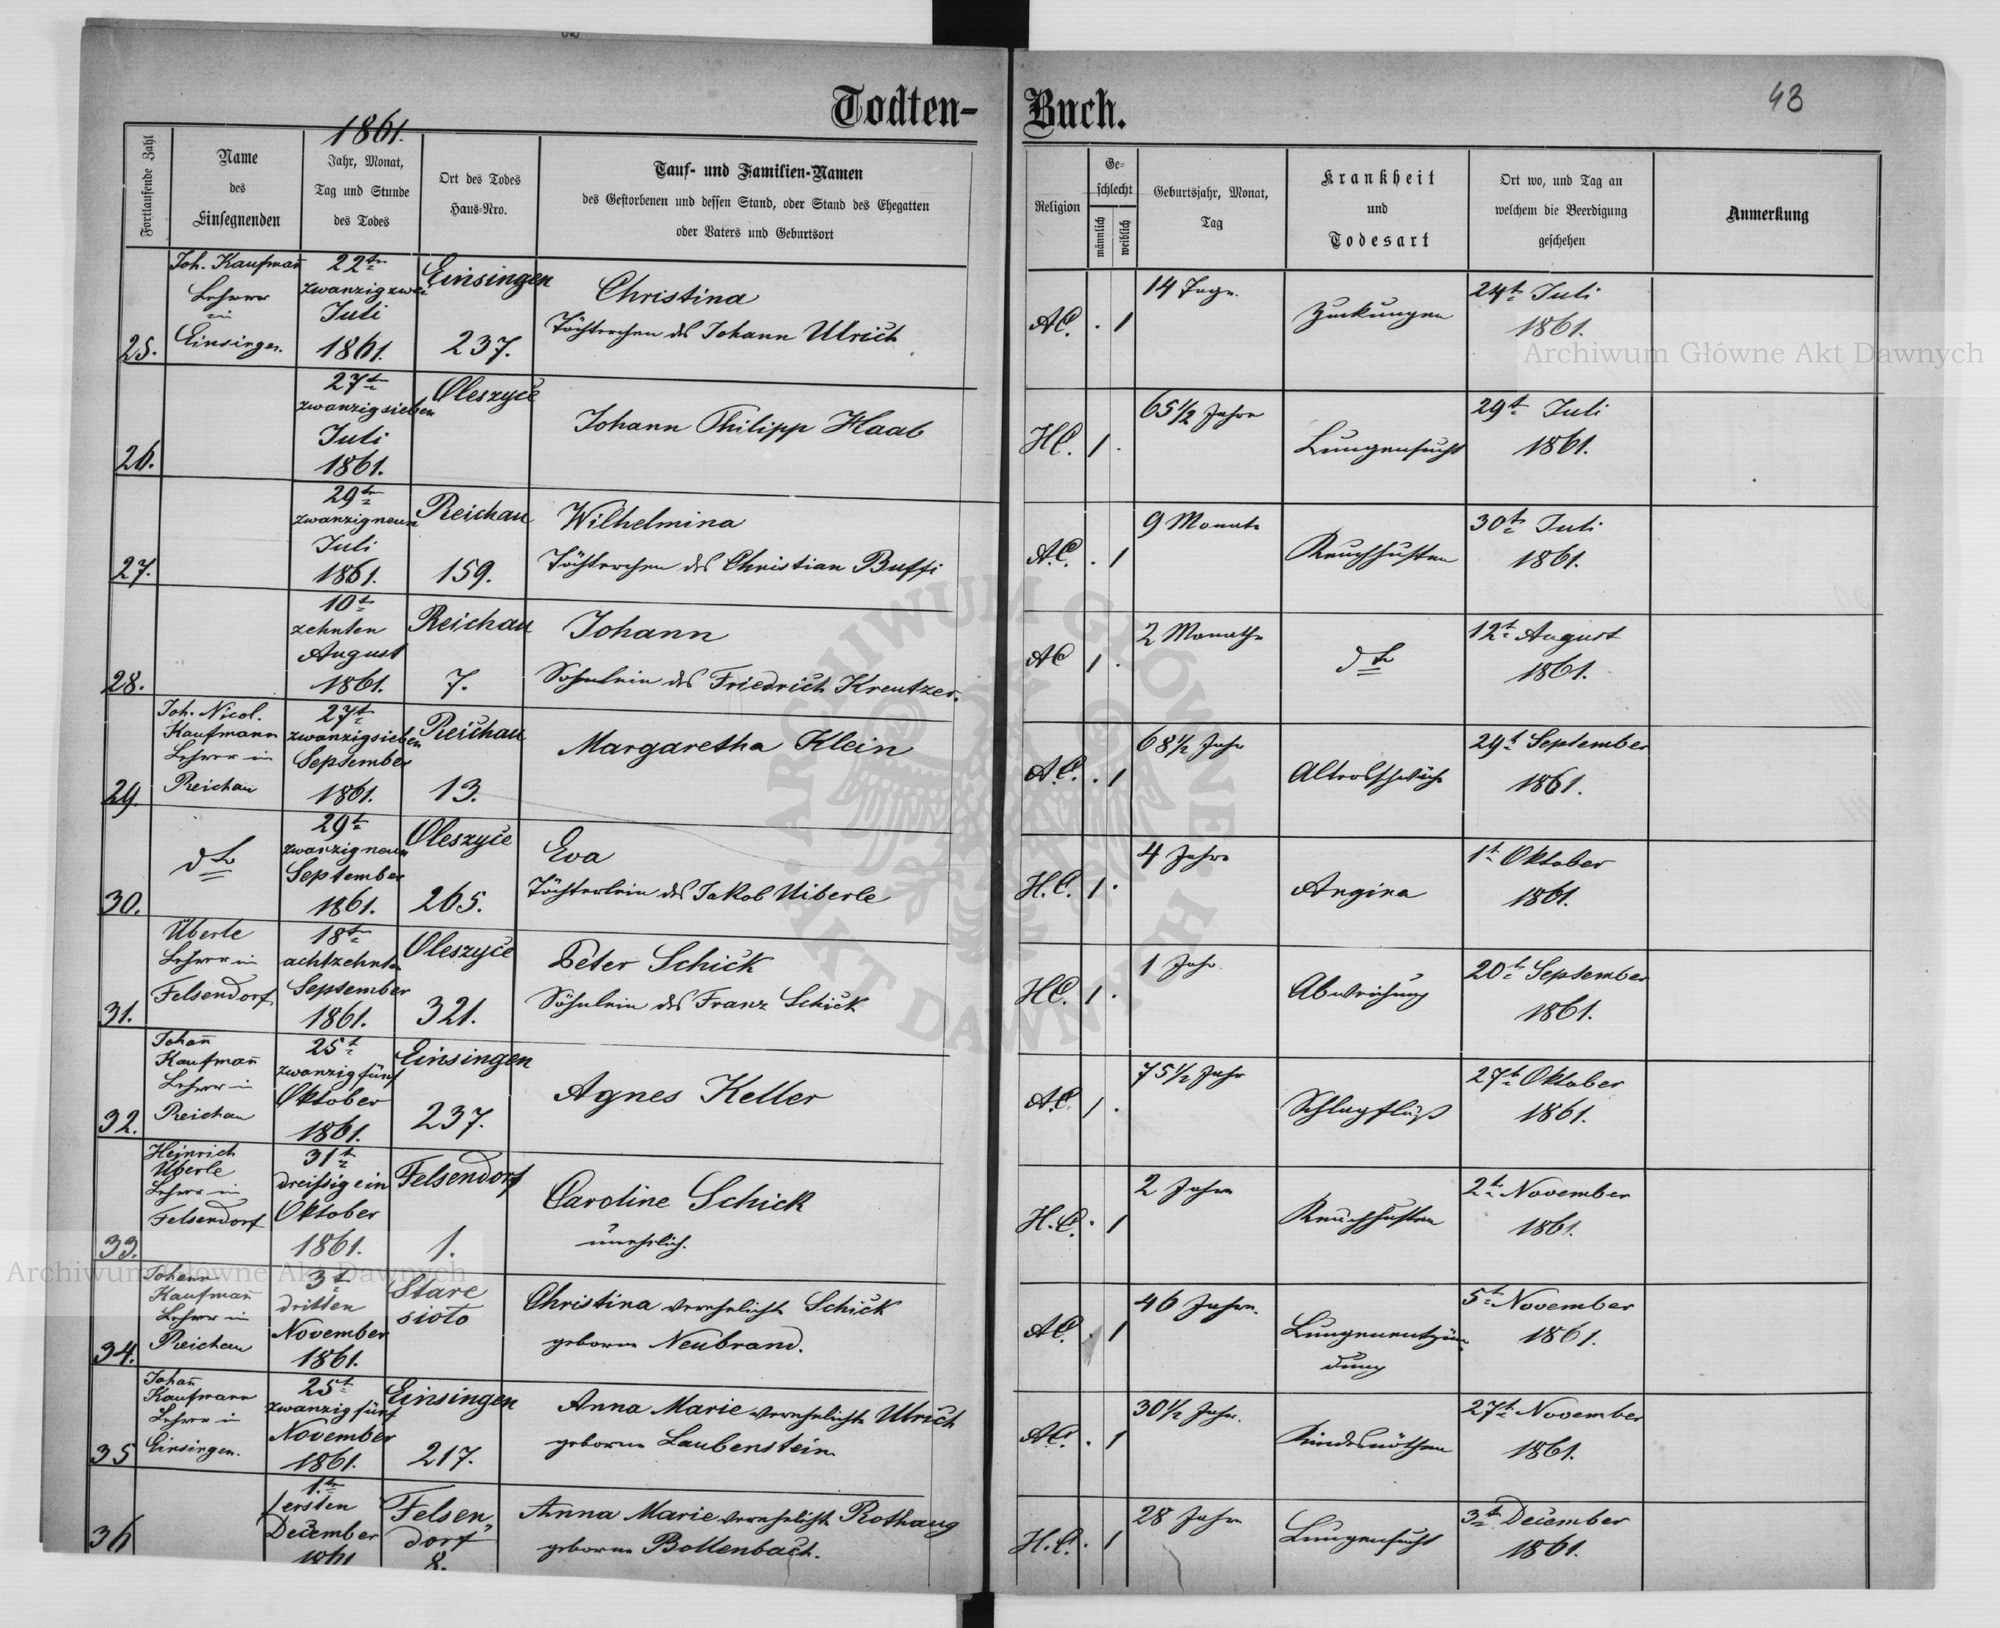 Todten-Buch.
43
1861.
Fortlaufende Zahl
Name
des
Einsegnenden
Jahr, Monat,
Tag und Stunde
des Todes
Ort des Todes
Haus-Nro.
Tauf- und Familien-Namen
des Gestorbenen und dessen Stand, oder Stand des Ehegatten
oder Vaters und Geburtsort
Religion
Ge-
schlecht
männlich
weiblich
Geburtsjahr, Monat,
Tag
Krankheit
und
Todesart
Ort wo, und Tag an
welchem die Beerdigung
geschehen
Anmerkung
25.
Joh. Kaufmañ
Lehrer
in
Einsingen.
22t
zwanzig zwei
Juli
1861.
Einsingen
237.
Christina
Töchterchen des Johann Ulrich
AC. . 1
14 Tage.
Zuckungen
24t Juli
1861.
26.
27t
zwanzig sieben
Juli
1861.
Oleszyce
Johann Philipp Haab
HC. 1 .
65 1/2 Jahre
Lungensucht
29t Juli
1861.
27.
29t
zwanzig neun
Juli
1861.
Reichau
159.
Wilhelmina
Töchterchen des Christian Buffi
A.C. . 1
9 Monate
Keuchhusten
30t Juli
1861.
28.
10t
zehnten
August
1861.
Reichau
7.
Johann
Söhnlein des Friedrich Kreutzer.
AC 1 .
2 Monathe
dto
12t August
1861.
29.
Joh. Nicol.
Kaufmann
Lehrer in
Reichau
27t
zwanzigsieben
September
1861.
Reichau
13.
Margaretha Klein
A.C. . 1
68 1/2 Jahr
Altersschwäche
29t September
1861.
30.
dto
29t
zwanzig neun
September
1861.
Oleszyce
265.
Eva
Töchterlein des Jakob Uiberle
H.C. 1 .
4 Jahre
Angina
1t Oktober
1861.
31.
Uberle
Lehrer in
Felsendorf
18t
achtzehnte
September
1861.
Oleszyce
321.
Peter Schick
Söhnlein des Franz Schick
HC. 1 .
1 Jahr.
Abweichung
20t September
1861.
32.
Johañ
Kaufmañ
Lehrer in
Reichau
25t
zwanzig fünf
Oktober
1861.
Einsingen
237.
Agnes Keller
A.C. 1 .
75 1/2 Jahr
Schlagfluß
27t Oktober
1861.
33.
Heinrich
Uberle
Lehrer in
Felsendorf
31t
dreissig ein
Oktober
1861.
Felsendorf
1.
Caroline Schick
unehelich.
H.C. . 1
2 Jahre
Keuchhusten
2t November
1861.
34.
Johann
Kaufmañ
Lehrer in
Reichau
3t
dritten
November
1861.
Stare
sioto
Christina verehelichte Schick
geborne Neubrand.
AC. . 1
46 Jahre.
Lungenentzün
dung
5t November
1861.
35
Johañ
Kaufmann
Lehrer in
Einsingen.
25t
zwanzig fünf
November
1861.
Einsingen
217.
Anna Marie verehelichte Ulrich
geborne Laubenstein
AC. . 1
30 1/2 Jahr.
Kindesnöthen
27t November
1861.
36
1.t
ersten
December
1861
Felsen
dorf
8.
Anna Marie verehelichte Rothaug
geborne Bollenbach.
H.C. . 1
28 Jahre
Lungensucht
3t December
1861.
Archiwum Główne Akt Dawnych
Archiwum Główne Akt Dawnych
ARCHIWUM GŁÓWNE AKT DAWNYCH